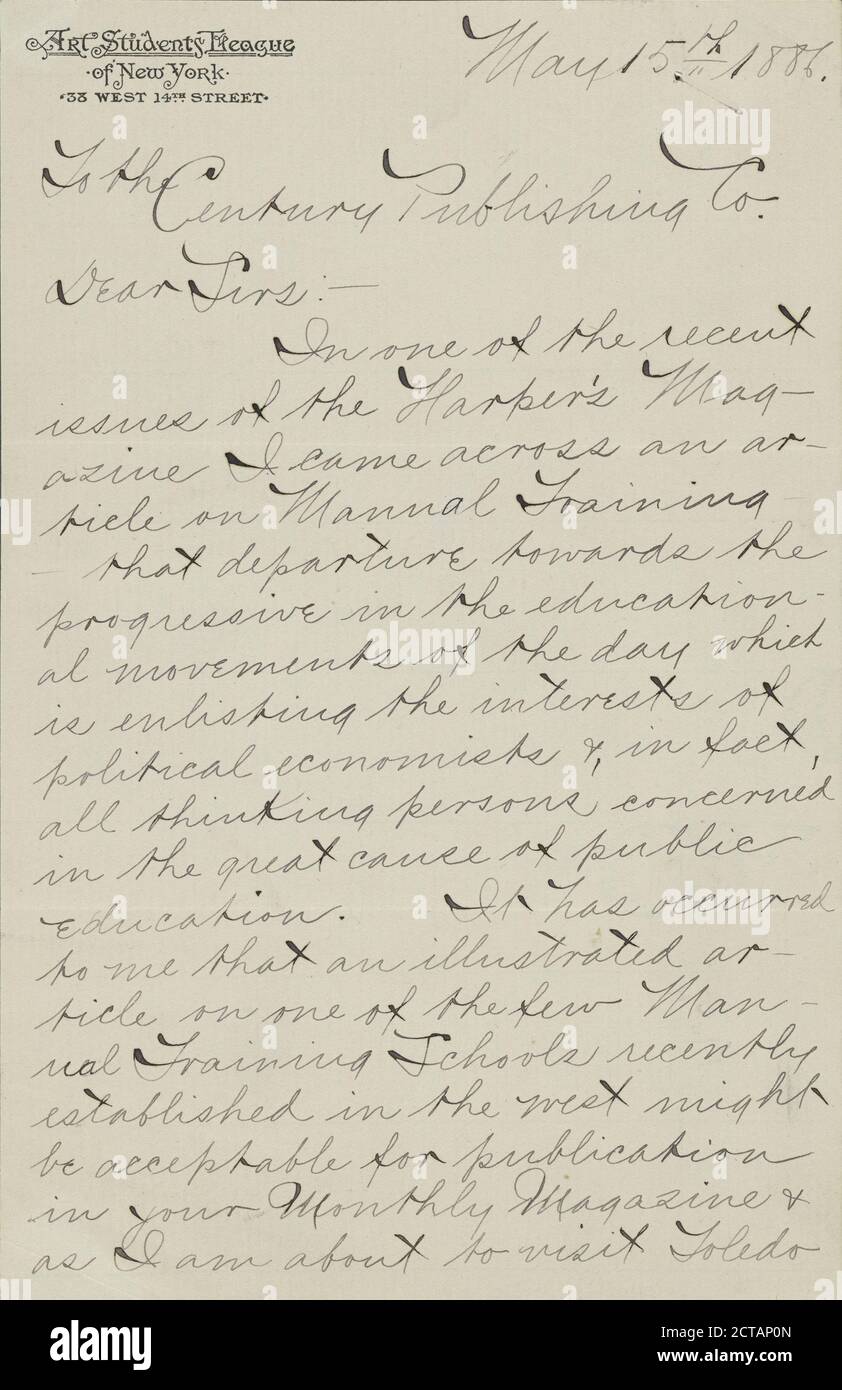 Art Students League
·of New York·
·38 WEST 14TH STREET·
May 15th 1886.
To the
Century Publishing Co.
Dear Sirs:—
In one of the recent
issues of the Harper's Mag-
azine I came across an ar-
ticle on Manual Training
— that departure towards the
progressive in the education-
al movements of the day which
is enlisting the interests of
political economists &, in fact,
all thinking persons concerned
in the great cause of public
education. It has occurred
to me that an illustrated ar-
ticle on one of the few Man-
ual Training Schools recently
established in the west might
be acceptable for publication
in your Monthly Magazine &
as I am about to visit Toledo
alamy
Image ID: 2CTAP0N
www.alamy.com